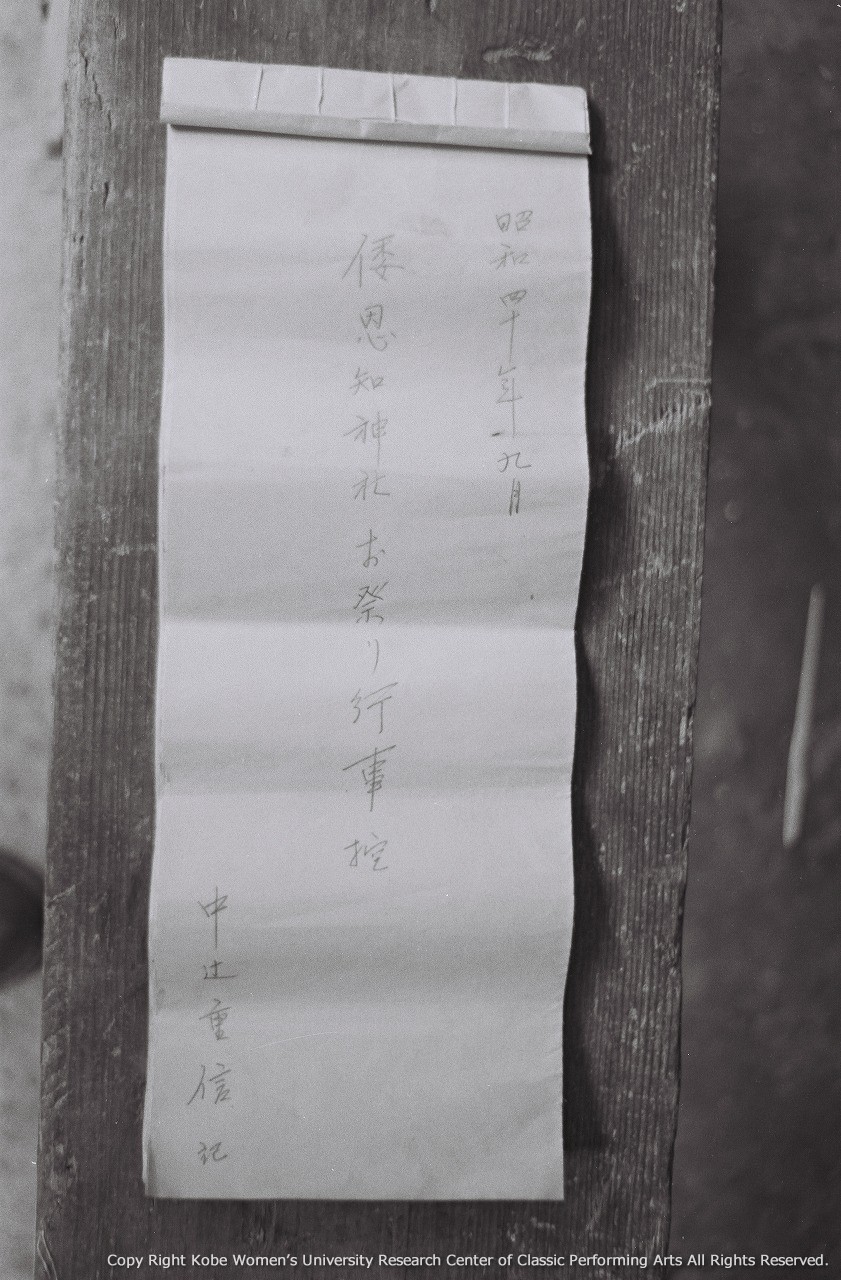 昭和四十年九月
倭恩知神社お祭り行事控
中辻重信記
Copy Right Kobe Women's University Research Center of Classic Performing Arts All Rights Reserved.